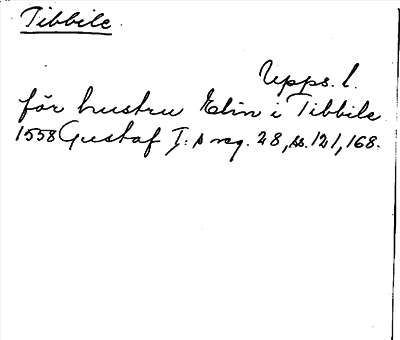 Tibbile.
Upps. l.
för hustru Elin i Tibbile
1558 Gustaf I:s reg. 28, ss. 121, 168.